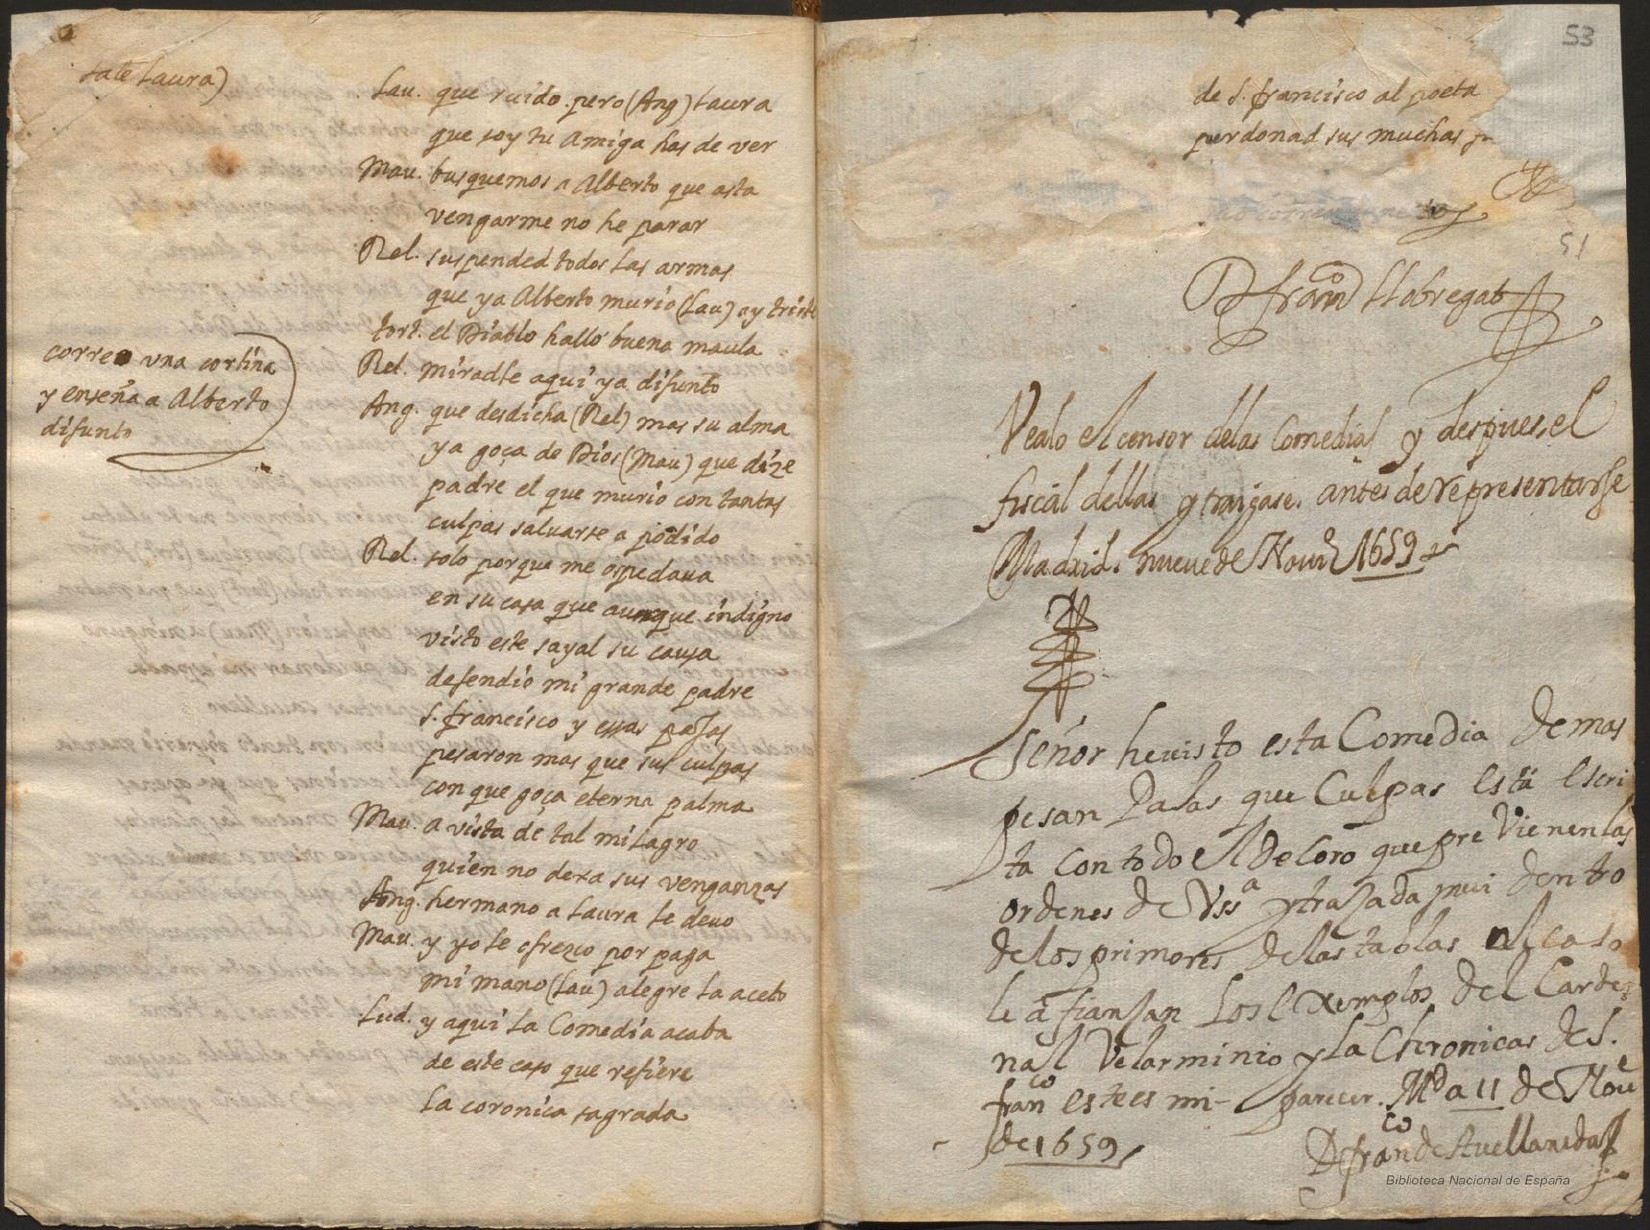 sale Laura)
Lau. que ruido. pero (Ang) Laura
que soy tu Amiga has de ver
Mau. busquemos a Alberto que asta
vengarme no he parar
Rel. suspended todos las armas
que ya Alberto murio (Lau) ay triste
tort. el Diablo hallo buena maula
corre una cortina
y enseña a Alberto
difunto
Rel. miradle aqui ya difunto
Ang. que desdicha (Rel) mas su alma
ya goça de Dios (Mau) que dize
padre el que murio con tantas
culpas saluarse a podido
Rel. solo porque me ospedaua
en su casa que aunque indigno
visto este sayal su causa
defendio mi grande padre
S. francisco y essas pajas
pesaron mas que sus culpas
con que goça eterna palma
Mau. a vista de tal milagro
quien no dexa sus venganzas
Ang. hermano a Laura le deuo
Mau. y yo le ofrezco por paga
mi mano (Lau) alegre la aceto
Lud. y aqui la Comedia acaba
de este caso que refiere
la coronica sagrada
53
de S. francisco al poeta
perdonad sus muchas
51
D fran^co Llobregat
Vealo el censor de las Comedias y despues, el
fiscal dellas y traigase. antes de representarse
Madrid. nueue de Nou^e 1659
Señor he uisto esta Comedia de mas
pesan Pajas que Culpas esta escri
ta con todo el decoro que pre vienen las
ordenes de Vss^a y trazada mui dentro
de los primores de las tablas el caso
le afianzan los exemplos del Carde
nal Velarminio y la Chronicas de S.
fran^co este es mi parecer. M^d a 11 de Nou^e
de 1659
D fran^co de Auellaneda
Biblioteca Nacional de España